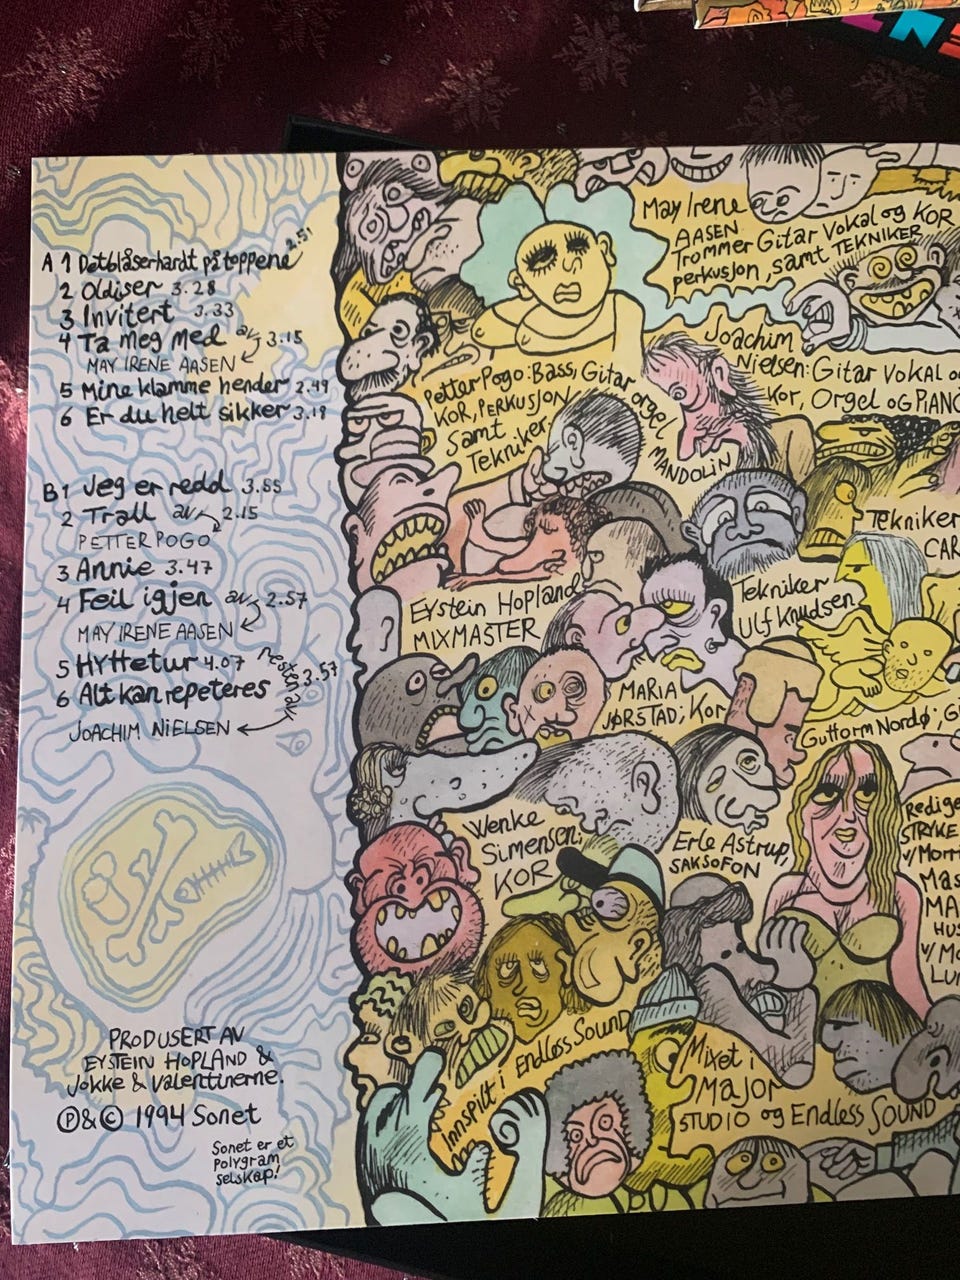 A 1 Det blåser hardt på toppene 2.51
2 Oldiser 3.28
3 Invitert 3.33
4 Ta meg med av 3.15
MAY IRENE AASEN
5 Mine klamme hender 2.49
6 Er du helt sikker 3.19
B 1 Jeg er redd 3.55
2 Trall av 2.15
PETTER POGO
3 Annie 3.47
4 Feil igjen av 2.57
MAY IRENE AASEN
5 Hyttetur 4.07
6 Alt kan repeteres nesten av 3.57
JOACHIM NIELSEN
PRODUSERT AV
EYSTEIN HOPLAND &
Jokke & Valentinerne.
℗ & © 1994 Sonet
Sonet er et
Polygram
selskap!
May Irene
AASEN
Trommer Gitar Vokal og KOR
perkusjon, samt TEKNIKER
Joachim
Nielsen: Gitar VOKAL
Kor, Orgel og PIANO
MANDOLIN
Petter Pogo: Bass, Gitar orgel
KOR, PERKUSJON
Samt
Tekniker
Tekniker
CAR
Eystein Hopland
MIXMASTER
Tekniker
Ulf Knudsen
MARIA
JØRSTAD; Kor
Guttorm Nordø: G
Wenke
Simensen;
KOR
Erle Astrup,
SAKSOFON
Redige
STRYKE
v/Morri
Mas
MA
HUS
v/Mo
LUN
Innspilt i ENDLESS SOUND
Mixet i
MAJOR
STUDIO og ENDLESS SOUND
EN